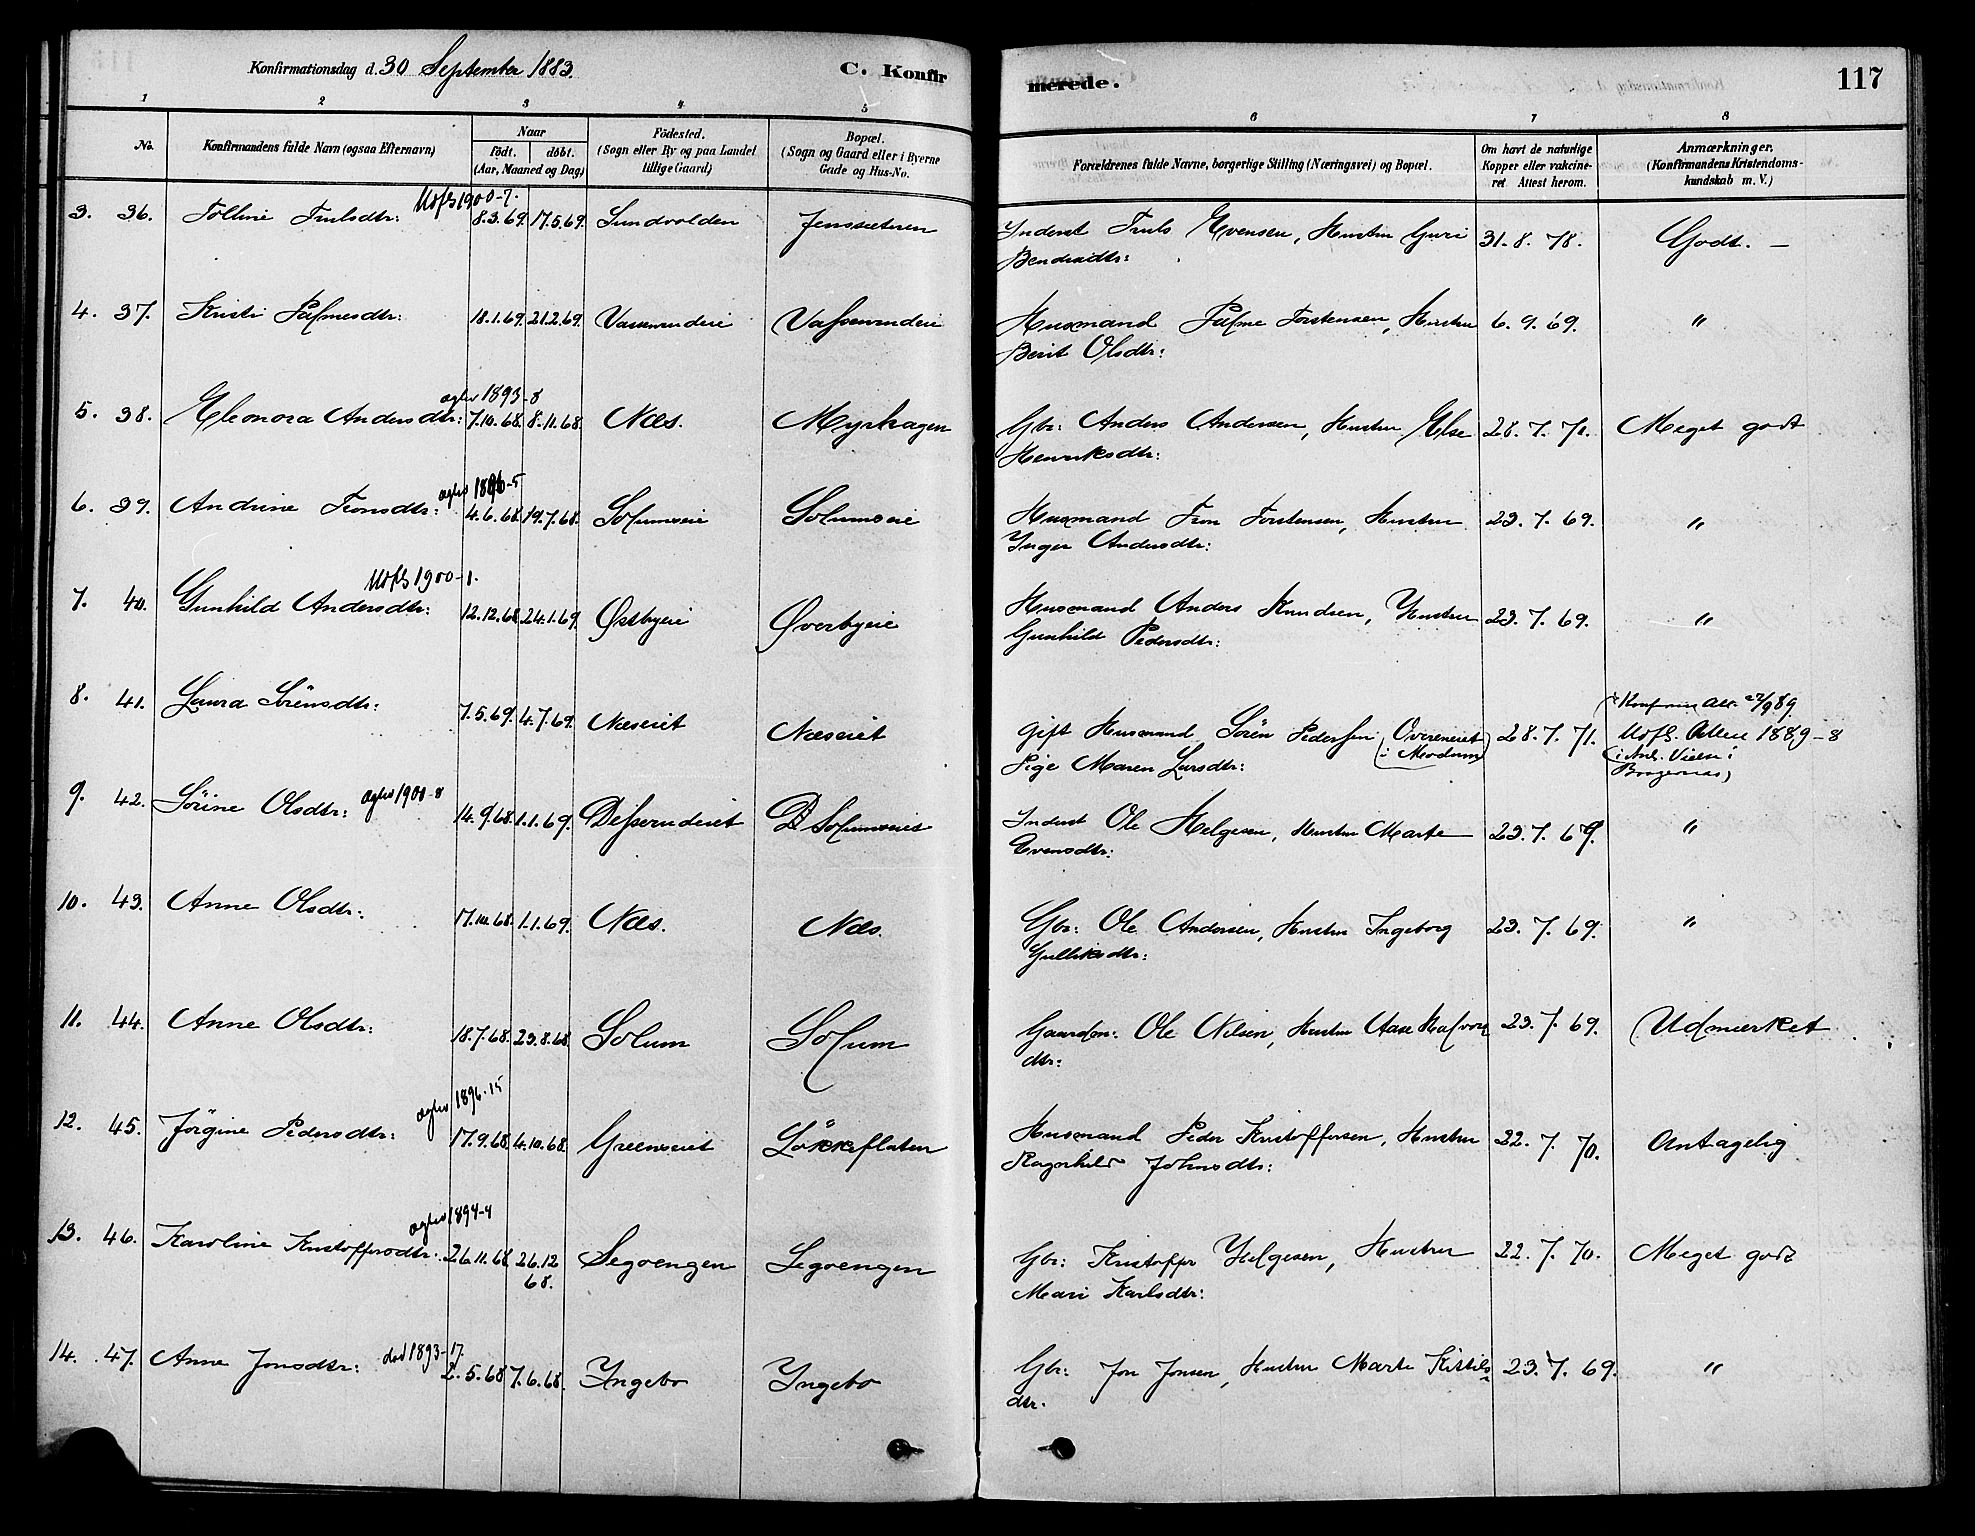 Konfirmationsdag d. 30 September 1883.
C. Konfir
merede.
117
1 2 3 4 5 6 7 8
No.
Konfirmandens fulde Navn (ogsaa Efternavn)
Naar
Födt. döbt.
(Aar, Maaned og Dag)
Födested.
(Sogn eller By og paa Landet
tillige Gaard)
Bopæl.
(Sogn og Gaard eller i Byerne
Gade og Hus-No.
Forældrenes fulde Navne, borgerlige Stilling (Næringsvei) og Bopæl.
Om havt de naturlige
Kopper eller vakcine-
ret Attest herom.
Anmærkninger.
(Konfirmandens Kristendoms-
kundskab m. V.)
Udfl 1900-7.
3. 36. Tolline Trulsdtr: 8.3.69. 17.5.69. Sundvolden Jenssæteren Inderst Truls Evensen, Hustru Guri 31.8.78. Godt. —
4. 37. Kristi Palmesdtr: 18.1.69. 21.2.69. Husmand Palme Torstensen, Hustru 6.9.69. "
Berit Olsdtr:
1893-8
5. 38. Eleonora Andersdtr: 7.10.68. 8.11.68. Næs. Myrhagen Gbr: Anders Andersen, Hustru Else 28.7.71. Meget godt
Henriksdtr:
1896-5
6. 39. Andrine Tronsdtr: 4.6.68. 19.7.68. Solumseie Solumseie Husmand Tron Torstensen, Hustru 23.7.69. "
Inger Andersdtr:
Udfl 1900-1.
7. 40. Gunhild Andersdtr: 12.12.68. 24.1.69. Østbyeie Øverbyeie Husmand Anders Knudsen, Hustru 23.7.69. "
Gunhild Pedersdtr:
8. 41. Laura Sörensdtr: 7.5.69. 4.7.69. Næseiet Næseiet gift Husmand Sören Pedersen (Overeneiet 28.7.71. Udfl. 1889-8
i Modum) Pige Maren Larsdtr:
9. 42. Sörine Olsdtr: 1900-8 14.9.68. 1.1.69. Solumseiet Inderst Ole Helgesen, Hustru Marte 23.7.69. "
Evensdtr:
10. 43. Anne Olsdtr: 17.10.68. 1.1.69. Næs. Næs. Gbr: Ole Andersen, Hustru Ingeborg 23.7.69. "
Gulliksdtr:
11. 44. Anne Olsdtr: 18.7.68. 23.8.68. Solum Solum Gaardm: Ole Nilsen, Hustru Aase Halvors 23.7.69. Udmærket
dtr:
1896-15
12. 45. Jörgine Pedersdtr: 17.9.68. 4.10.68. Greenseiet Lökkeflaten Husmand Peder Kristoffersen, Hustru 22.7.70. Antagelig
Ragnhild Johnsdtr:
1894-4
13. 46. Karoline Kristoffersdtr: 26.11.68. 26.12 68. Segvengen Segvengen Gbr: Kristoffer Helgesen, Hustru 22.7.70. Meget godt
Mari Karlsdtr:
14. 47. Anne Jonsdtr: död 1893-17. 2.5.68 7.6.68. Yngebo Yngebo Gbr: Jon Jonsen, Hustru Marte Kittils 23.7.69. "
dtr.